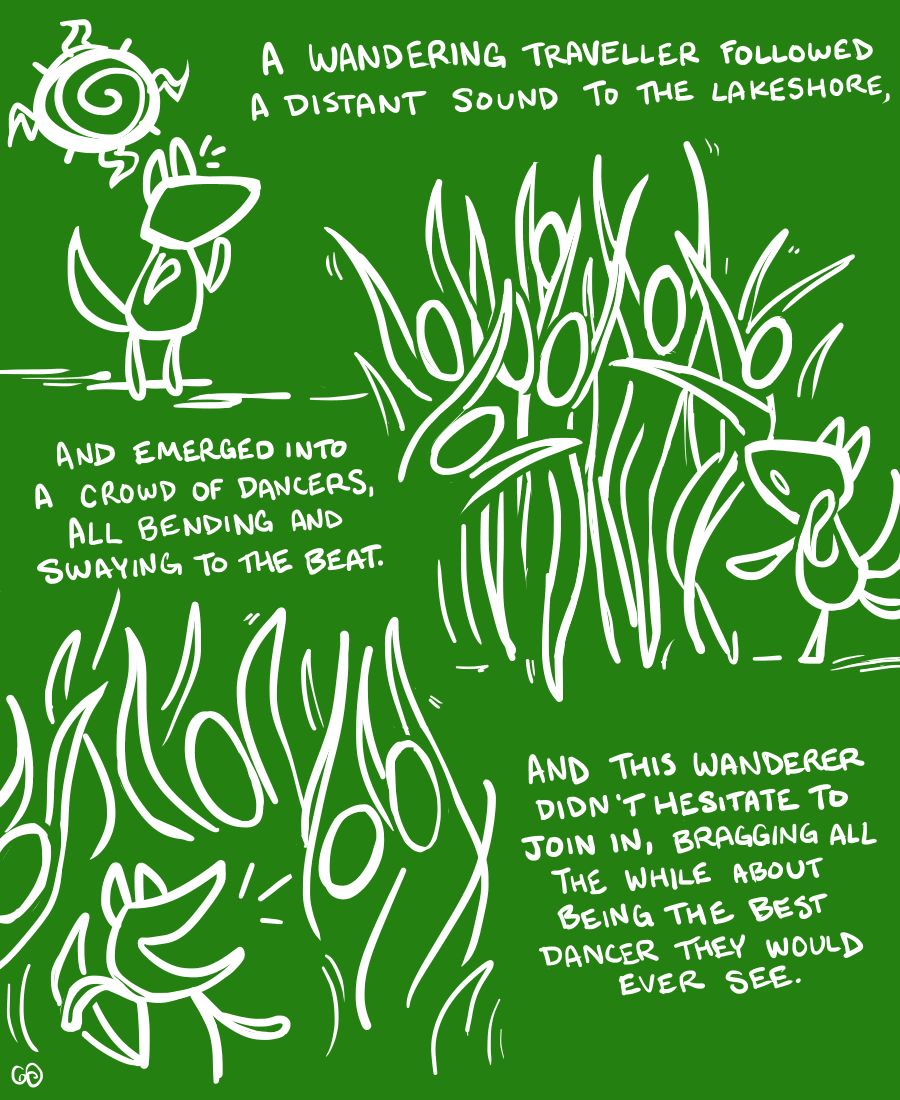 A WANDERING TRAVELLER FOLLOWED
A DISTANT SOUND TO THE LAKESHORE,
AND EMERGED INTO
A CROWD OF DANCERS,
ALL BENDING AND
SWAYING TO THE BEAT.
AND THIS WANDERER
DIDN'T HESITATE TO
JOIN IN, BRAGGING ALL
THE WHILE ABOUT
BEING THE BEST
DANCER THEY WOULD
EVER SEE.